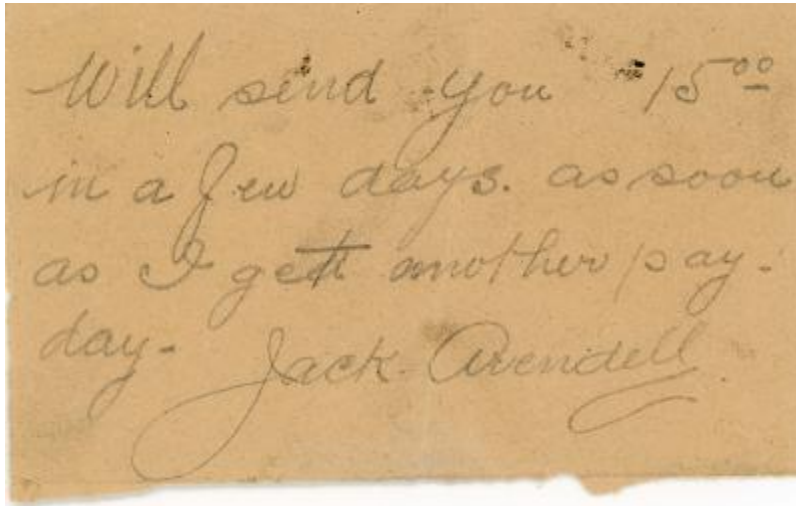 Will send you $15.00
in a few days. as soon
as I gett another pay-
day- Jack Arendell